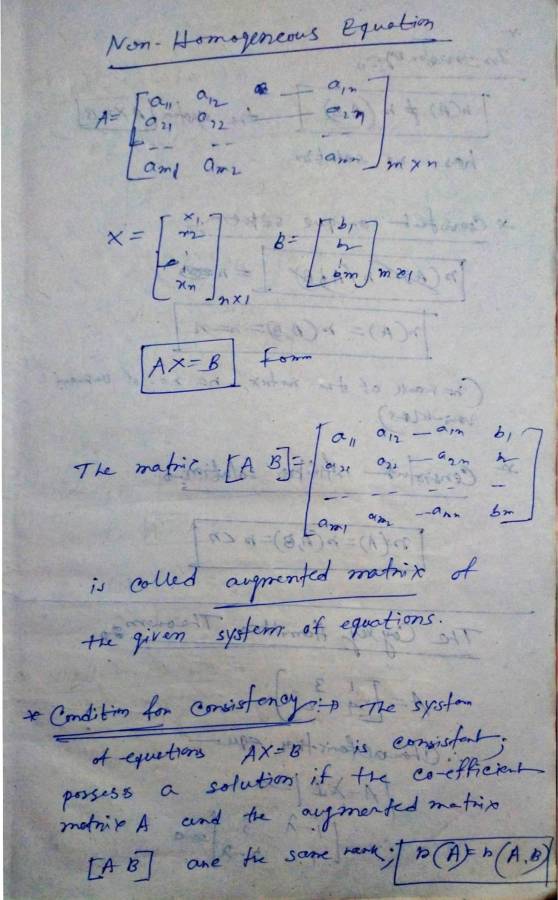 Non-Homogeneous Equation
A= [ a11 a12 — a1n
a21 a22 — a2n
-- -- --
am1 am2 amn ] m×n
X = [ x1 x2 ⋮ xn ] n×1 B= [ b1 b2 ⋮ bm ] m×1
AX=B form
The matrix [A B]= [ a11 a12 — a1n b1
a21 a22 — a2n b2
-- -- -- -- --
am1 am2 — amn bm ]
is called augmented matrix of
the given system of equations.
* Condition for consistency :→ The system
of equations AX=B is consistent;
possess a solution if the co-efficient
matrix A and the augmented matrix
[A B] are the same rank; r(A)= r(A,B)